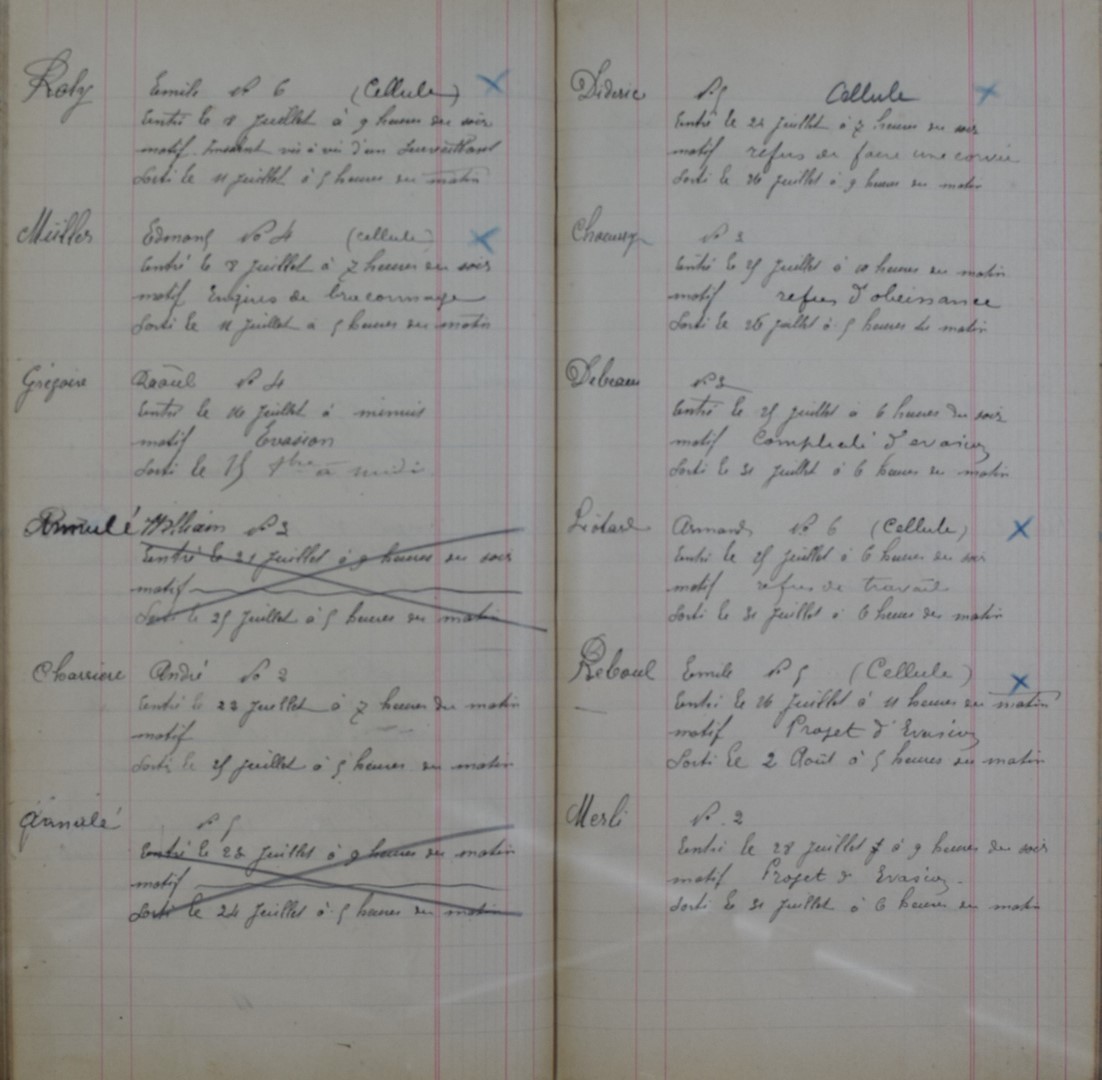 Roby Emile N° 6 (Cellule)
Entré le 8 juillet à 9 heures du soir
motif Insolent vis à vis d'un Surveillant
Sorti le 11 juillet à 5 heures du matin
Müller Edmond N° 4 (cellule)
Entré le 8 juillet à 7 heures du soir
motif de braconnage
Sorti le 11 juillet à 5 heures du matin
Grégoire Raoul N° 4
Entré le 10 juillet à minuit
motif Evasion
Sorti le 15 à midi
Annulé William N° 3
Entré le 21 juillet à 9 heures du soir
motif
Sorti le 25 juillet à 5 heures du matin
Charriere André N° 2
Entré le 22 juillet à 7 heures du matin
motif
Sorti le 25 juillet à 5 heures du matin
Annulé
N° 5
Entré le 23 juillet à 9 heures du matin
motif
Sorti le 24 juillet à 5 heures du matin
Dideric N° 5 Cellule
Entré le 22 juillet à 7 heures du soir
motif refus de faire une corvée
Sorti le 26 juillet à 9 heures du matin
N° 3
Entré le 25 juillet à 10 heures du matin
motif refus d'obeissance
Sorti le 26 juillet à 5 heures du matin
Debeaux N° 3
Entré le 25 juillet à 6 heures du soir
motif Complicité d'evasion
Sorti le 31 juillet à 6 heures du matin
Liotard Armand N° 6 (Cellule)
Entré le 25 juillet à 6 heures du soir
motif refus de travail
Sorti le 31 juillet à 6 heures du matin
Reboul Emile N° 5 (Cellule)
Entré le 26 juillet à 11 heures du matin
motif Projet d'Evasion
Sorti le 2 Août à 5 heures du matin
Merli N° 2
Entré le 28 juillet à 9 heures du soir
motif Projet d'Evasion
Sorti le 31 juillet à 6 heures du matin